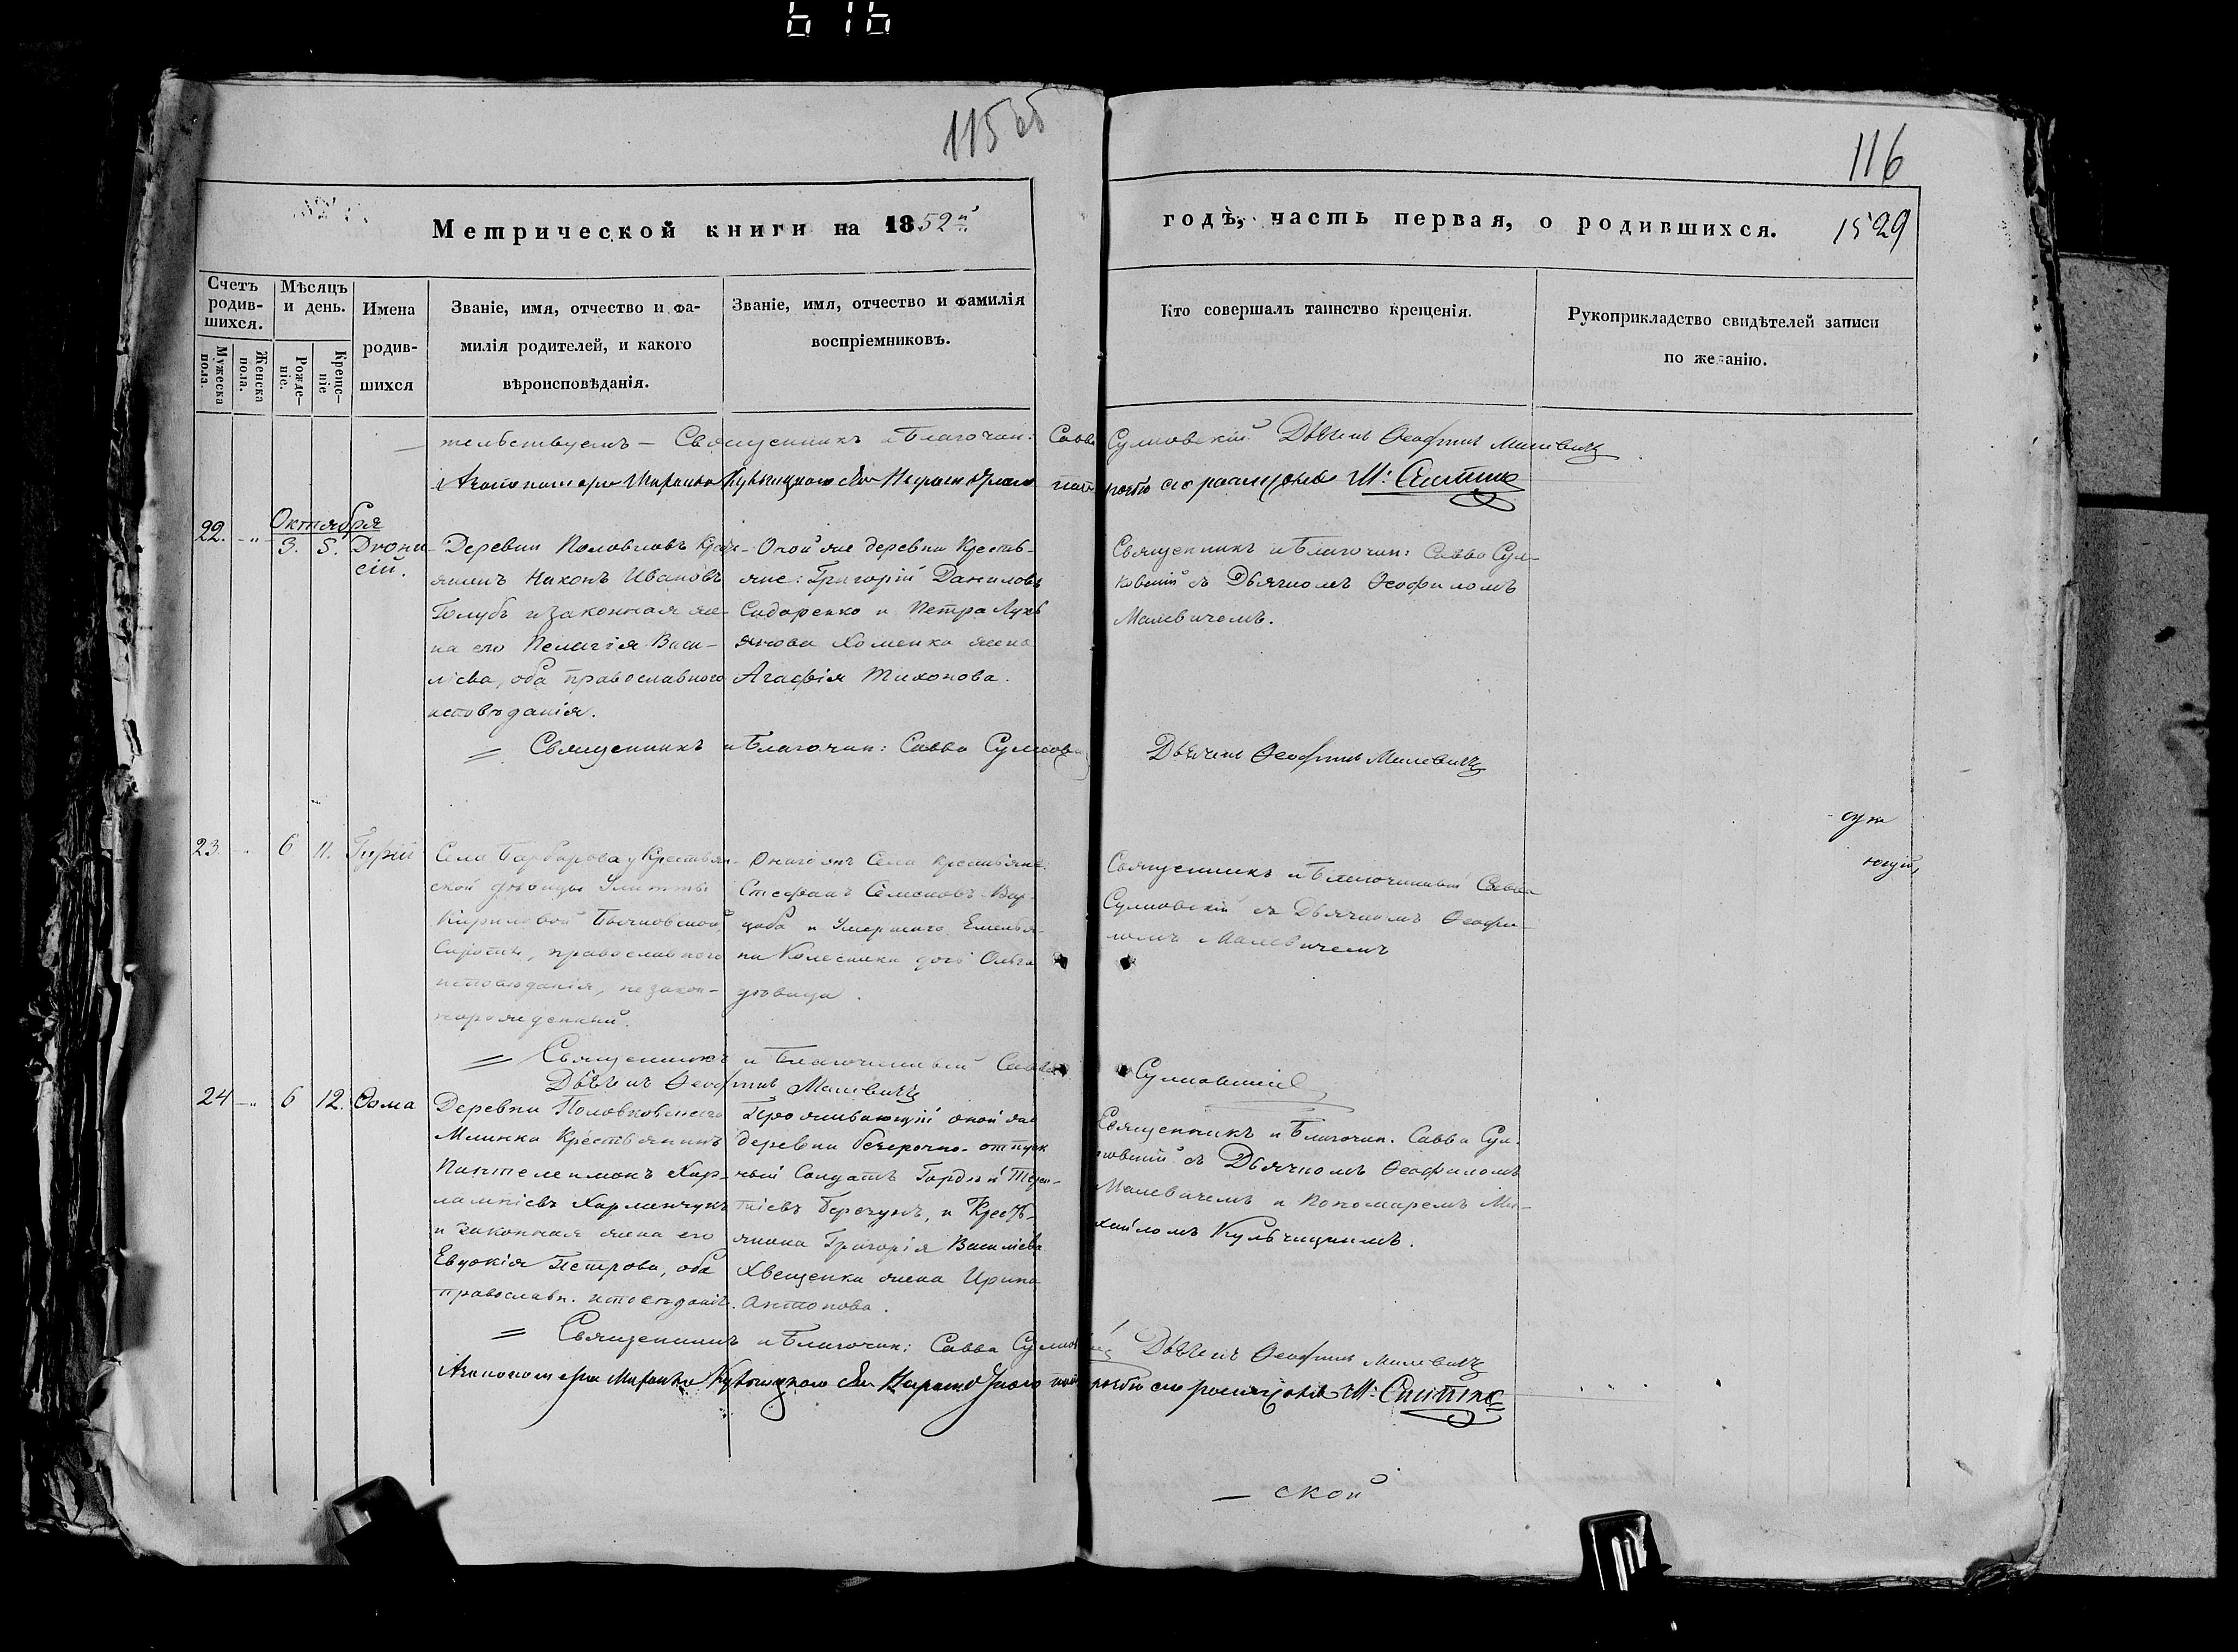 616
115 об
116
Метрической книги на 1852й
годъ, часть первая, о родившихся. 1529
Счетъ родив-шихся.
Мужеска пола.
Женска пола.
Мѣсяцъ и день.
Рожде-ніе.
Креще-ніе
Имена
родив-
шихся
Званіе, имя, отчество и фа-
милія родителей, и какого
вѣроисповѣданія.
Званіе, имя, отчество и фамилія
воспріемниковъ.
Кто совершалъ таинство крещенія.
Рукоприкладство свидѣтелей записи
по желанію.
тельствуемъ — Священникъ и Благочин: Савва Сулковскій Дьячекъ Ѳеофилъ Малевичъ
Октября
22. -„ 3. 5. Діони-
сій.
Деревни Половковъ Крест-
янинъ Никонъ Ивановъ
Голубъ и законная же-
на его Пелагія Васи-
ліева, оба православного
исповѣданія.
Оной же деревни Крестья-
яне: Григорій Даниловъ
Сидоренко и Петра Лукь
янова Хоменка жена
Агафія Тихонова.
Священникъ и Благочин: Савва Сул-
ковскій съ Дьячкомъ Ѳеофиломъ
Малевичемъ.
= Священникъ и Благочин: Савва Сулков
Дьячекъ Ѳеофилъ Малевичъ
23. 6 11. Гурій
Села Барбарова у Крестьян-
ской дѣвицы
Кириловой
православного
исповѣданія, незакон-
норожденный.
Онаго жъ Села Крестьяне:
Стефанъ Семеновъ Вар-
цаба и Умершаго Емелья-
на Колесника дочь Ольга
дѣвица.
Священникъ и Благочинный Савва
Сулковскій съ Дьячкомъ Ѳеофи-
ломъ Малевичемъ
= Священникъ и Благочинный Савва Сулковскій
Дьячекъ Ѳеофилъ Малевичъ
24 -„ 6 12. Ѳома
Деревни Половковского
Млинка Крестьянинъ
Пантелеимонъ Хар-
лампіевъ Харланчукъ
и законная жена его
Евдокія Петрова, оба
православн. исповѣданія.
Проживающій оной же
деревни безсрочно-отпуск
ный Солдатъ Гордѣй Терен-
тіевъ Берегунъ, и Кресть-
янина Григорія Василіева
Хвещенка жена Ирина
Антонова.
Священникъ и Благочин. Савва Сул-
ковскій съ Дьячкомъ Ѳеофиломъ
Малевичемъ и Пономаремъ Ми-
хайломъ Кульчицкимъ.
= Священникъ и Благочин: Савва Сулков Дьячекъ Ѳеофилъ Малевичъ
— ской